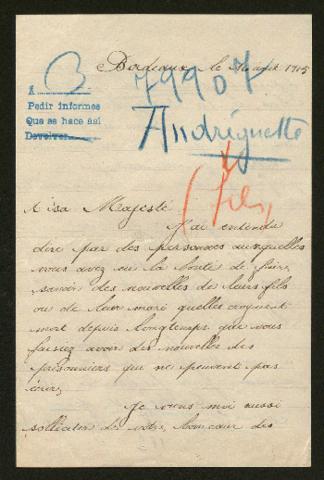 Bordeaux le 30 août 1915
A
Pedir informes
Que se hace así
Devolver
79907
Andréguette
(Fils)
A sa Majesté
J'ai entendu
dire par des personnes auxquelles
vous avez eu la bonté de faire
savoir des nouvelles de leurs fils
ou de leur mari quelles croyaient
mort depuis longtemps que vous
faisiez avoir des nouvelles des
prisonniers qui ne peuvent pas
écrire
Je vous moi aussi
solliciter de votre bon cœur des